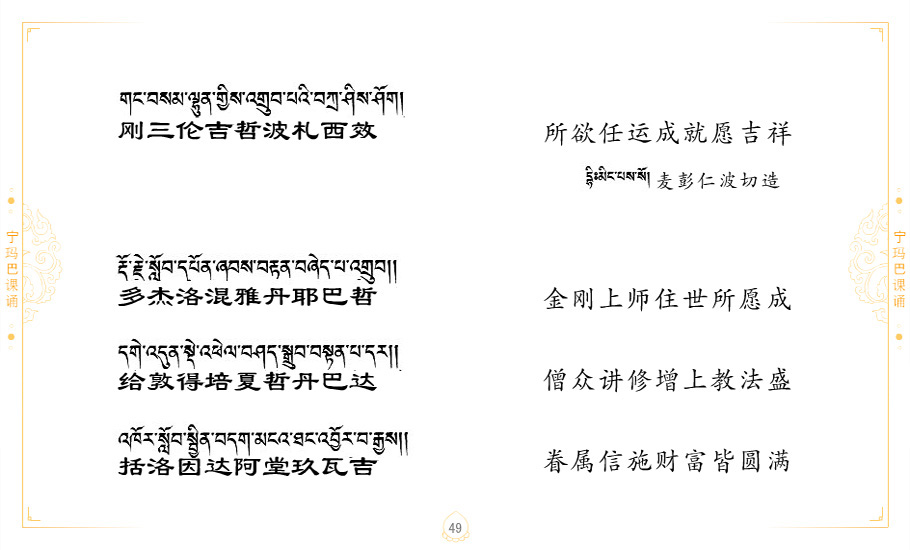 གང་བསམ་ལྷུན་གྱིས་འགྲུབ་པའི་བཀྲ་ཤིས་ཤོག།
刚三伦吉哲波札西效
所欲任运成就愿吉祥
麦彭仁波切造
རྡོ་རྗེ་སློབ་དཔོན་ཞབས་བརྟན་བཞེད་པ་འགྲུབ།།
多杰洛混雅丹耶巴哲
金刚上师住世所愿成
དགེ་འདུན་སྡེ་འཕེལ་བཤད་སྒྲུབ་བསྟན་པ་དར།།
给敦得培夏哲丹巴达
僧众讲修增上教法盛
འཁོར་སློབ་སྦྱིན་བདག་མངའ་ཐང་འབྱོར་བ་རྒྱས།།
括洛因达阿堂玖瓦吉
眷属信施财富皆圆满
宁玛巴课诵
宁玛巴课诵
49